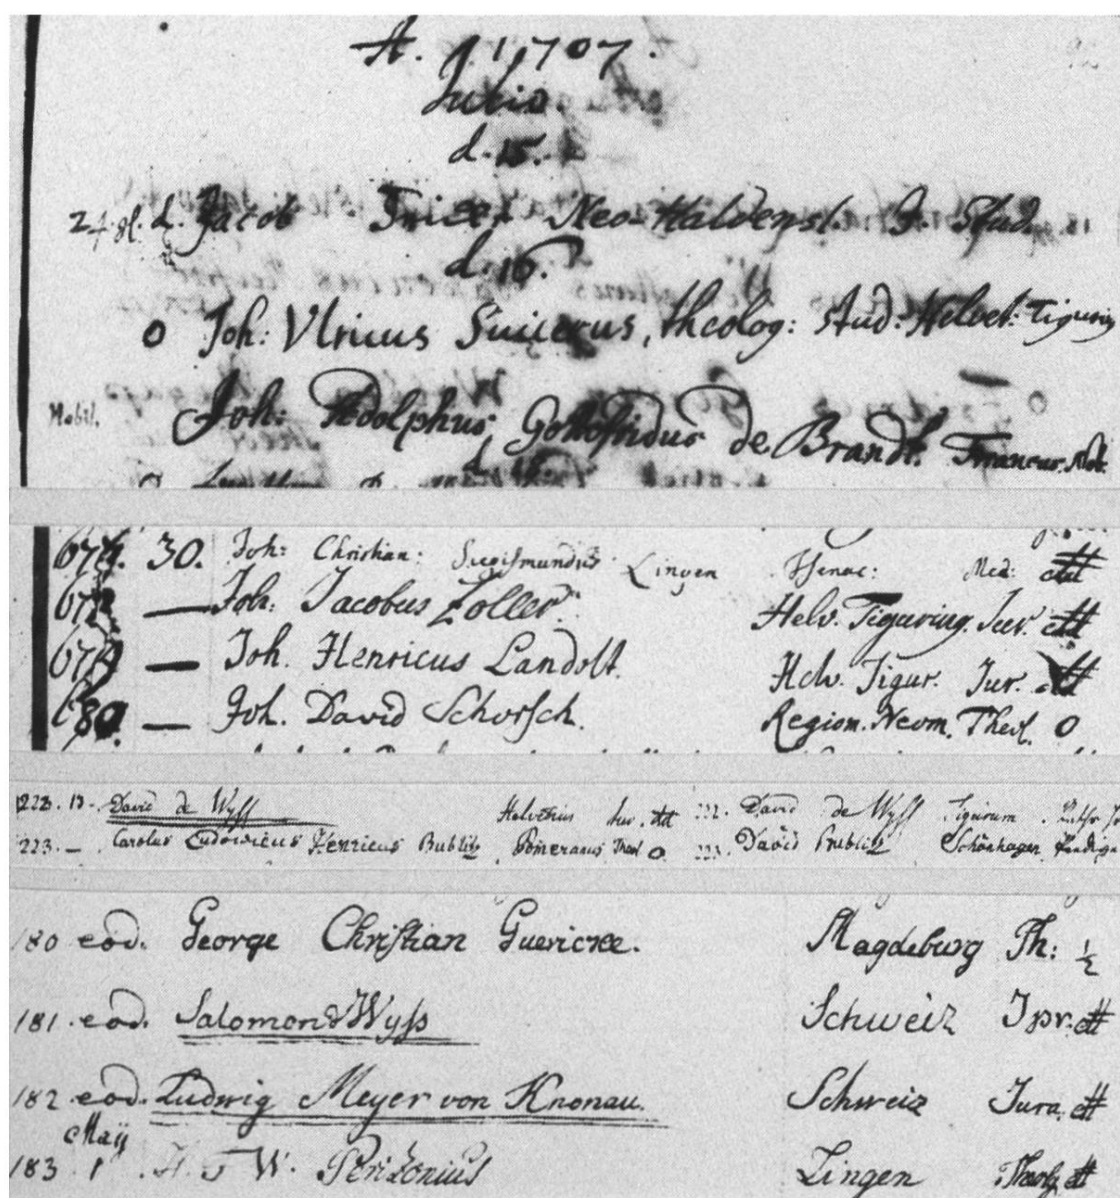 A. 1707.
Julio.
d. 15.
24 gl. d. Jacob Neo-Haldensl. Stud.
d. 16.
O Joh: Vlricus Suicerus, theolog: stud: Helvet: Tigurin
Nobil. Joh: Adolphus Gottofridus de Brandt. Francus. Nob.
30. Joh: Christian: Siegismundus Lingen Isenac: Med:
— Joh. Jacobus Zoller. Helv. Tiguring. Jur.
679 — Joh. Henricus Landolt. Helv. Tigur. Jur.
680. — Joh. David Schorsch. Regiom. Neom. Theol. O
222. 13. David de Wyss Helvetius Jur. 222. David de Wyss Tigurum
223. — Carolus Ludovicus Henricus Bublitz Pomeranus Theol O 223. David Bublitz Schönhagen
180 eod. George Christian Guericke. Magdeburg Th: ½
181. eod. Salomon Wyss Schweiz Jpr.
182 eod. Ludwig Meyer von Knonau. Schweiz Jura
Maij
183 1 W. Perizonius Lingen Theolg